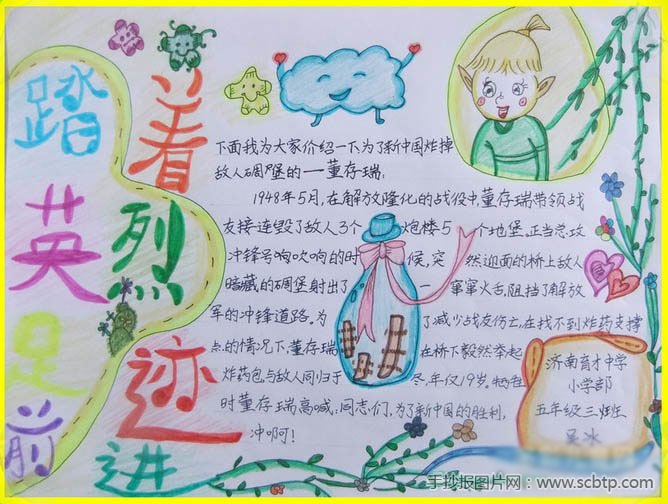 踏着
英烈
足迹
前进
下面我为大家介绍一下为了新中国炸掉
敌人碉堡的——董存瑞;
1948年5月,在解放隆化的战役中,董存瑞带领战
友接连毁了敌人3个炮楼5个地堡.正当总攻
冲锋号响吹响的时候,突然迎面的桥上敌人
暗藏的碉堡射出了一串串火舌,阻挡了解放
军的冲锋道路.为了减少战友伤亡,在找不到炸药支撑
点的情况下,董存瑞在桥下毅然举起
炸药包与敌人同归于尽,年仅19岁.牺牲
时董存瑞高喊,同志们,为了新中国的胜利,
冲啊!
济南育才中学
小学部
五年级三班
手抄报图片网:www.scbtp.com